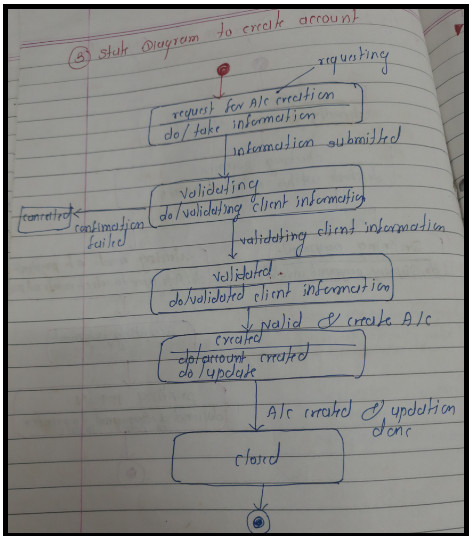 ③ State Diagram to create account
requesting
request for A/c creation
do/take information
information submitted
validating
do/validating client information
cancelled
confirmation
failed
validating client information
validated
do/validated client information
valid & create A/c
created
do/account created
do/update
A/c created & updation
done
closed